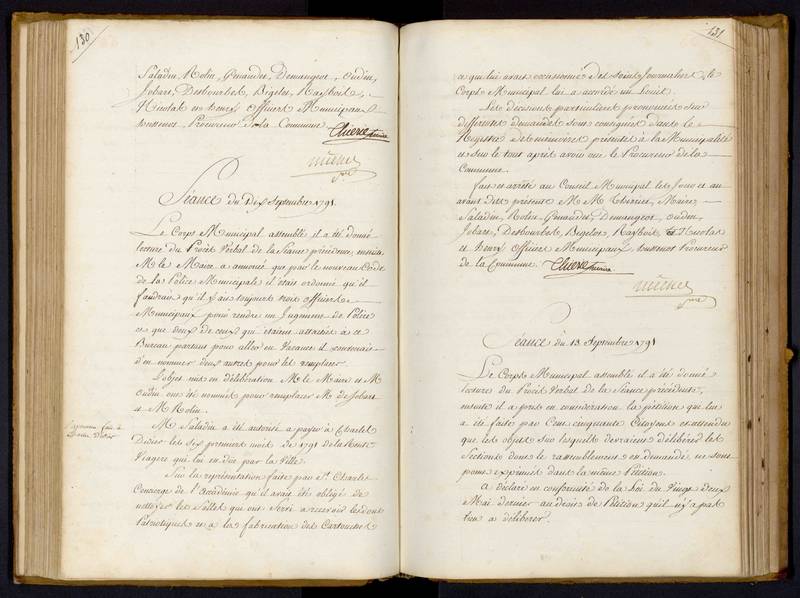 130
Saladin, Rolin, Genaudet, Demangeot, Oudin,
Jobart, Desbourbes, Bigelot, Raybois,
Nicolas et henry officiers Municipaux
toussenot Procureur de la Commune Thieriet maire
Séance du Dix Septembre 1791.
Le Corps Municipal assemblé il a été donné
lecture du Procès Verbal de la Séance précédente, ensuite
M. le Maire a annoncé que par le nouveau Code
de la Police Municipale il était ordonné qu'il
faudrait qu'il y ait toujours trois officiers
Municipaux pour rendre un Jugement de Police
et que deux de ceux qui étaient attachés à ce
Bureau partant pour aller en Vacance il convenait
d'en nommer deux autres pour les remplacer.
L'objet mis en délibération M. le Maire et M.
Oudin ont été nommés pour remplacer M. de Jobart
et M. Rolin.
faite à
Didier
M. Saladin a été autorisé a payer à Charles
Didier les six premiers mois de 1791 de la Rente
Viagere qui lui en due par la Ville.
Sur la représentation faite par St. Charles
Concierge de l'Académie qu'il avait été obligé de
nettoyer les Salles qui ont servi a recevoir les dons
Patriotiques et à la fabrication des Cartouches
131
ce qui lui avait occasionné des soins Journaliers, le
Corps Municipal lui a accordé un Louis.
Les décisions particulières prononcées sur
differentes demandes sont consignées dans le
Registre des mémoires présentés à la Municipalité
et sur le tout après avoir oui le Procureur de la
Commune.
fait et arrêté au Conseil Municipal les Jour et an
avant dits présents M M Thieriet, Maire,
Saladin, Rolin, Genaudet, Demangeot, oudin,
Jobart, Desbourbes, Bigelot, Raybois, et Nicolas
et henry officiers Municipaux, toussenot Procureur
de la Commune. Thieriet maire
Séance du 13 Septembre 1791
Le Corps Municipal assemblé il a été donné
lecture du Procès Verbal de la Séance précédente,
ensuite il a pris en considération la pétition qui lui
a été faite par Cent cinquante Citoyens et attendu
que les objets sur lesquels devraient délibérer les
Sections dont le rassemblement en demandé ne sont
point exprimés dans la même Pétition.
a déclaré en conformité de la Loi du Vingt deux
Mai dernier au droit de Pétition qu'il n'y a pas
lieu a délibérer.